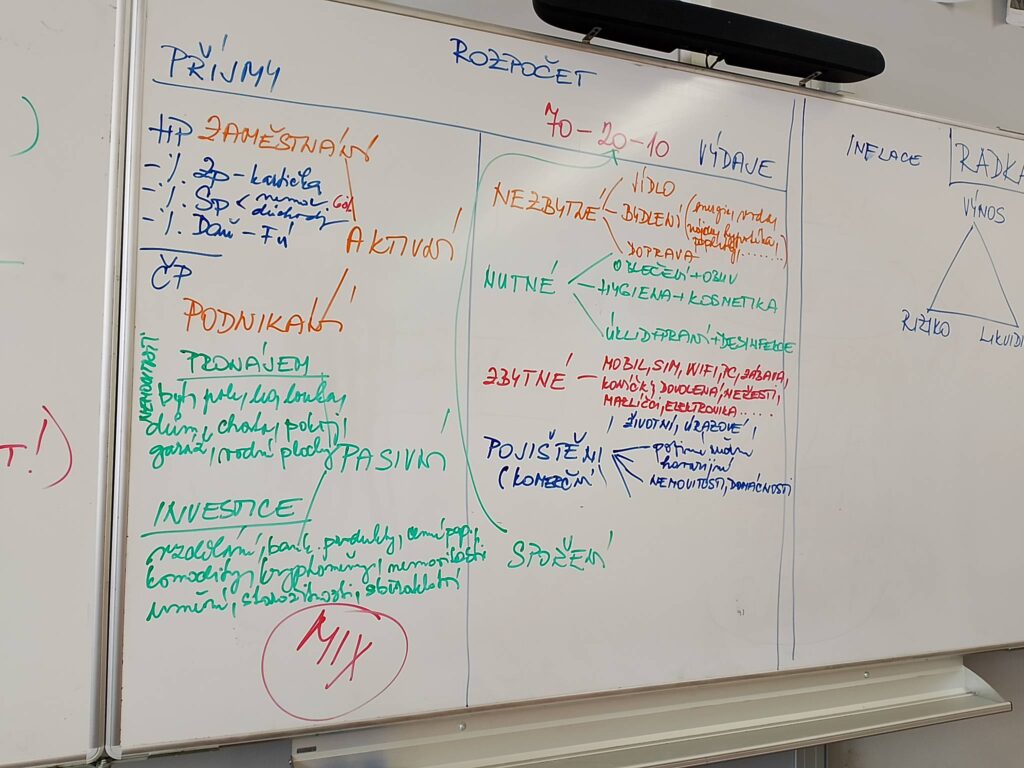 PŘÍJMY
ROZPOČET
HP ZAMĚSTNÁNÍ
- %. ZP - kartička
- %. SP < nemoc.
důchody
- %. Daň - FÚ
ČP
AKTIVNÍ
PODNIKÁNÍ
NEMOVITOSTI
PRONÁJEM
byt, pole, les, louka,
dům, chata, pokoj,
garáž, vodní plochy
PASIVNÍ
INVESTICE
vzdělání, bank. produkty, cenné pap.,
komodity, kryptoměny, nemovitosti
umění, starožitnosti, sběratelství
MIX
70-20-10
VÝDAJE
NEZBYTNÉ
JÍDLO
BYDLENÍ (energie, vody,
nájem, hypotéka,
poplatky, .......)
DOPRAVA
NUTNÉ
OBLEČENÍ + OBUV
HYGIENA + KOSMETIKA
ÚKLID + PRANÍ + DESINFEKCE
ZBYTNÉ - MOBIL, SIM, WIFI, PC, ZÁBAVA,
KONÍČKY, DOVOLENÁ, NEŘESTI,
MAZLÍČCI, ELEKTRONIKA ......
POJIŠTĚNÍ
(KOMERČNÍ
ŽIVOTNÍ, ÚRAZOVÉ,
havarijní
NEMOVITOSTI, DOMÁCNOSTI
SPOŘENÍ
INFLACE
RADKA
VÝNOS
RIZIKO
LIKUIDI
T!)